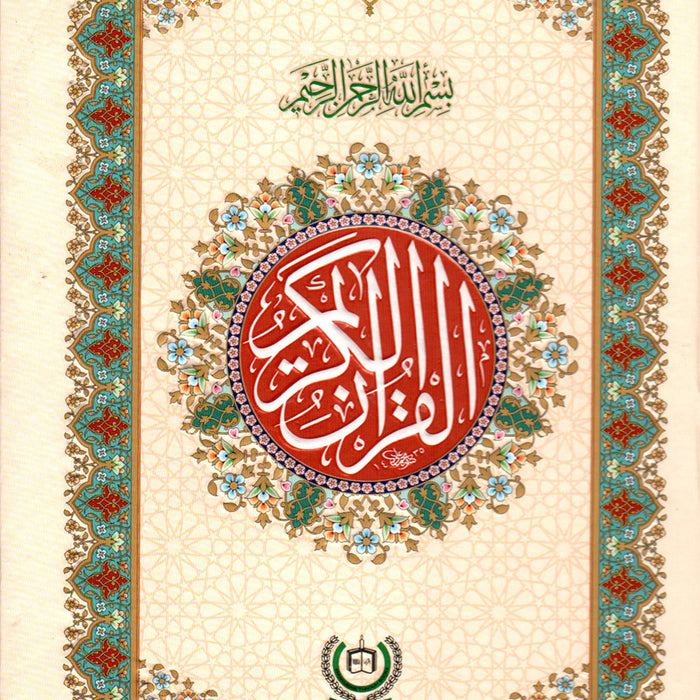 بِسْمِ اللّٰهِ الرَّحْمٰنِ الرَّحِيْمِ
القرآن الكريم